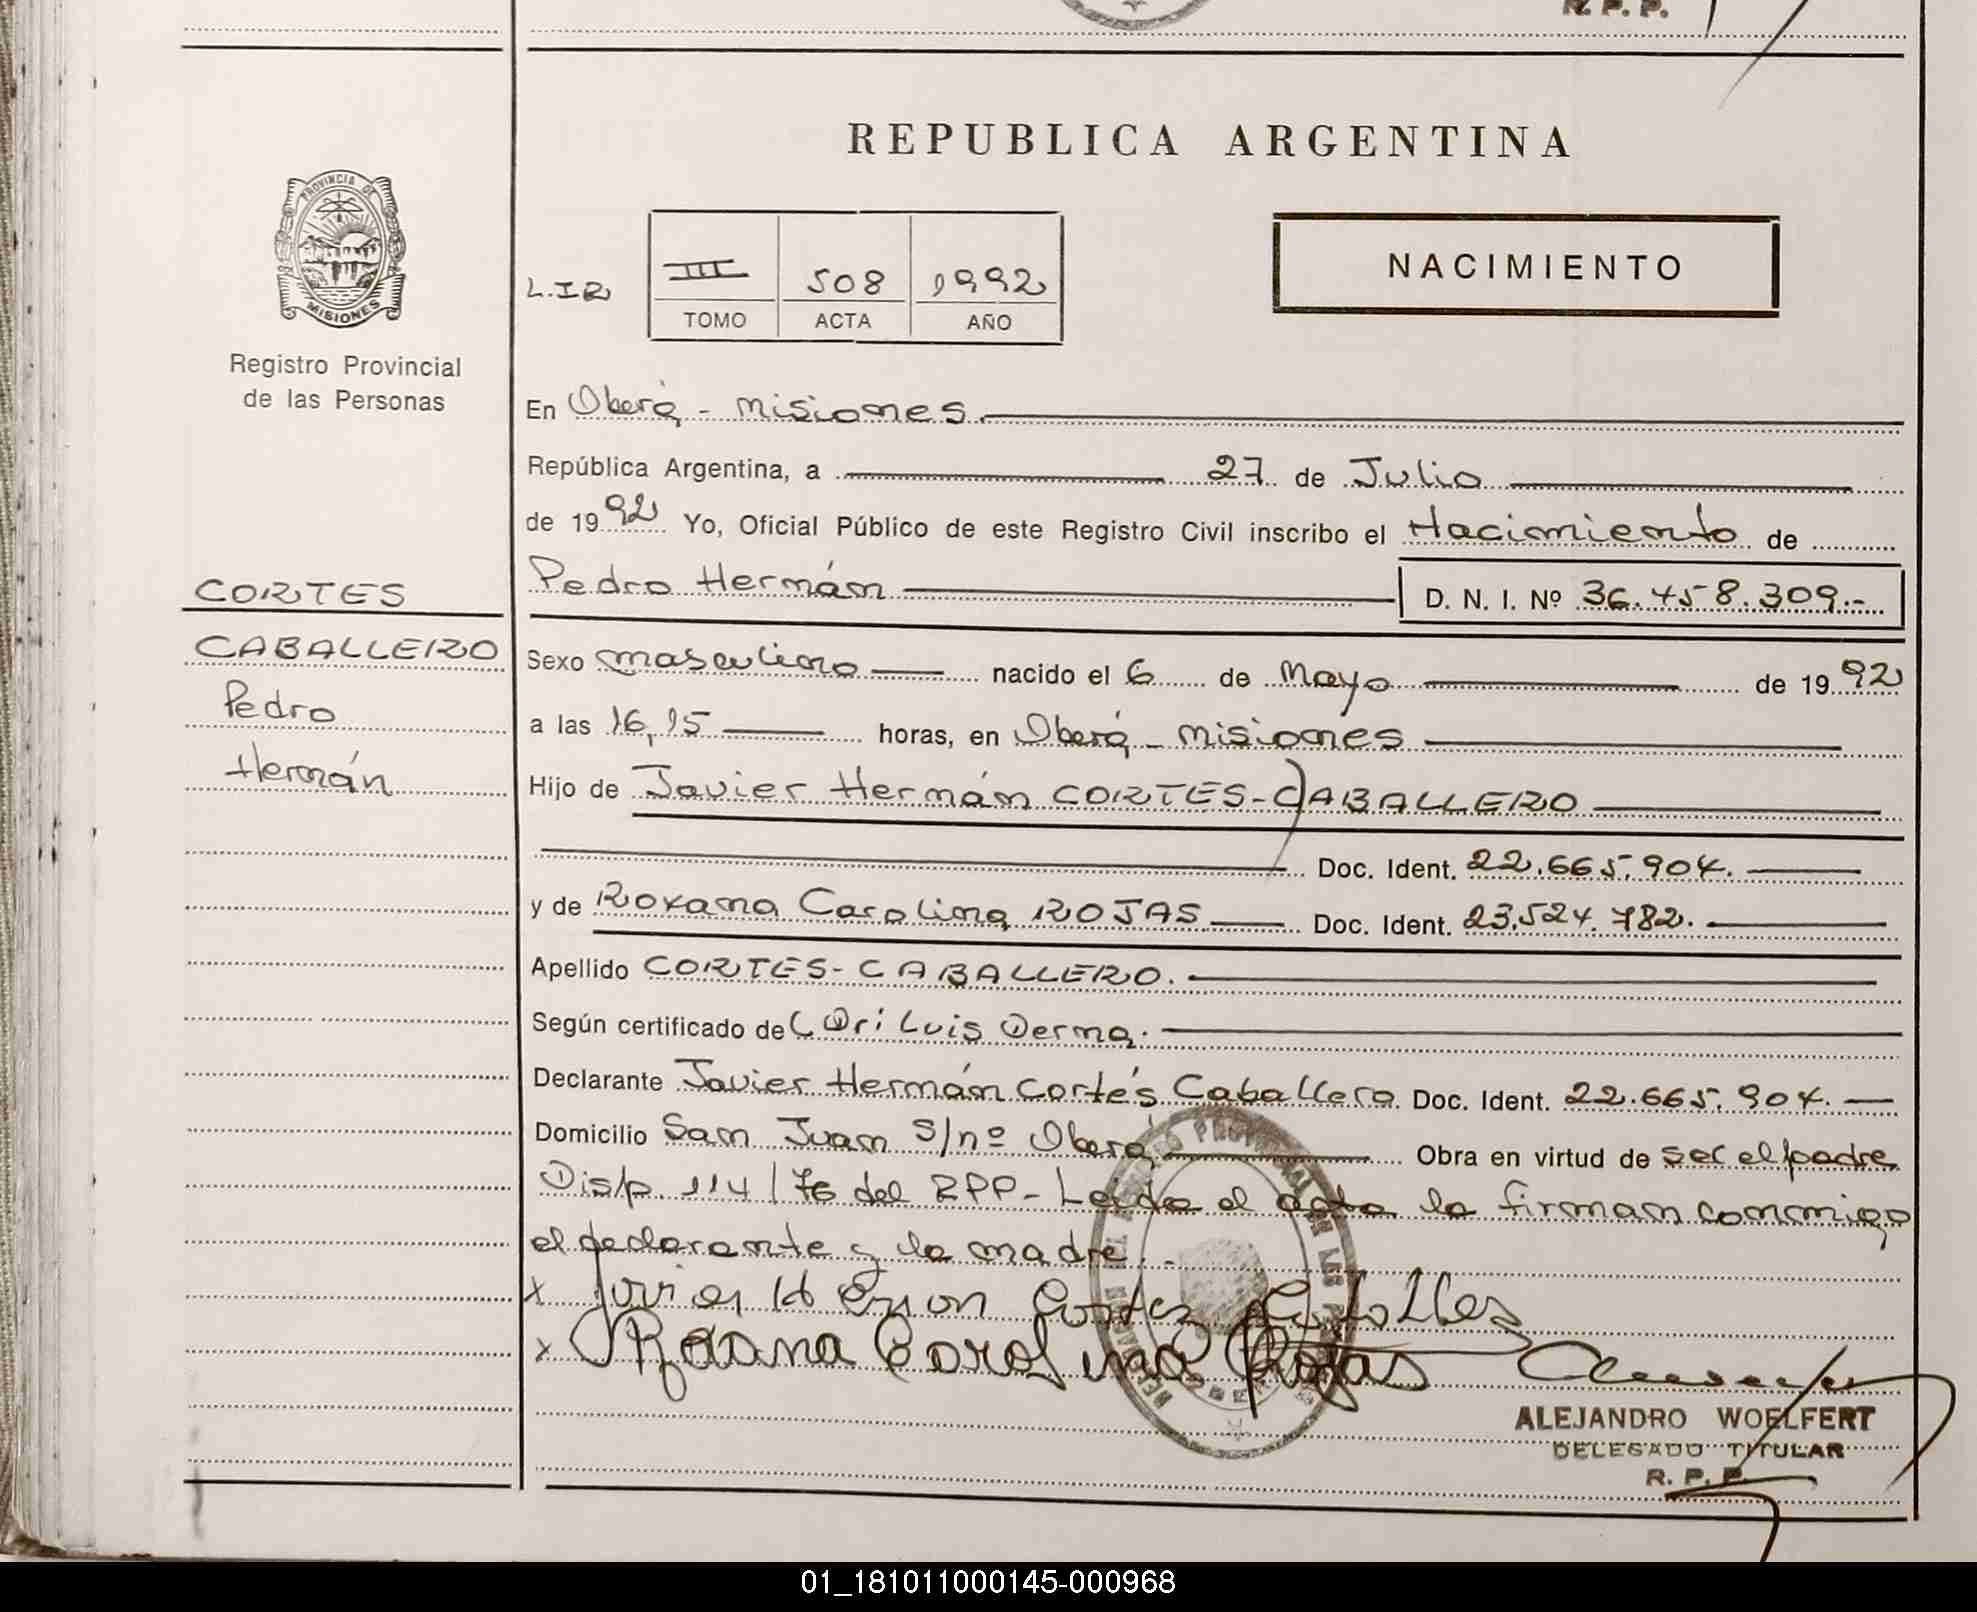 R. P. P.
REPUBLICA ARGENTINA
PROVINCIA DE
MISIONES
Registro Provincial
de las Personas
L.I.R
III 508 1992
TOMO ACTA AÑO
NACIMIENTO
En Oberá - Misiones
República Argentina, a 27 de Julio
de 1992 Yo, Oficial Público de este Registro Civil inscribo el Nacimiento de
Pedro Hernán D. N. I. Nº 36.458.309.-
CORTES
CABALLERO
Pedro
Hernán
Sexo masculino nacido el 6 de Mayo de 1992
a las 16,15 horas, en Oberá - Misiones
Hijo de Javier Hernán CORTES-CABALLERO
Doc. Ident. 22.665.904.
y de Roxana Carolina ROJAS Doc. Ident. 23.524.782.
Apellido CORTES-CABALLERO.
Según certificado de Luis Derna.
Declarante Javier Hernán Cortés Caballero Doc. Ident. 22.665.904.
Domicilio San Juan S/nº Oberá Obra en virtud de ser el padre
Disp. 114/76 del RPP- Leida el acta la firman conmigo
el declarante y la madre.
x Javier Hernan Cortez
x Roxana Carolina Rojas
ALEJANDRO WOELFERT
DELEGADO TITULAR
R. P. P.
01_181011000145-000968